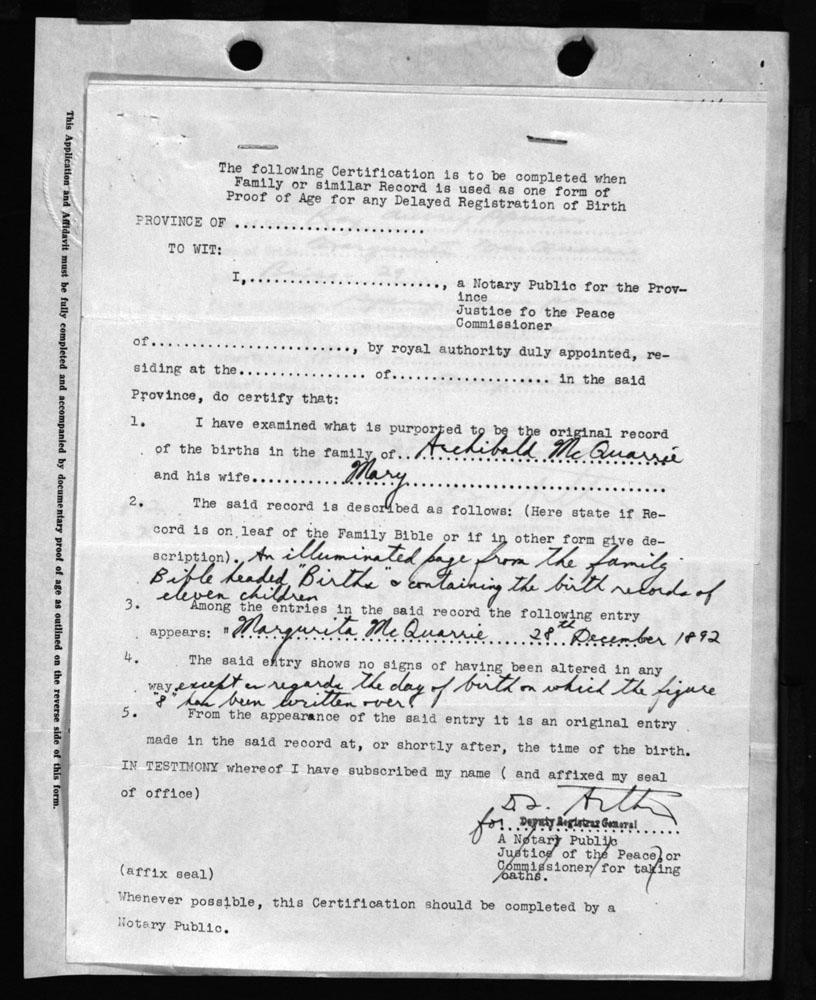 The following Certification is to be completed when
Family or similar Record is used as one form of
Proof of Age for any Delayed Registration of Birth
PROVINCE OF ........................
TO WIT:
I,........................, a Notary Public for the Prov-
ince
Justice fo the Peace
Commissioner
of........................, by royal authority duly appointed, re-
siding at the................ of.................... in the said
Province, do certify that:
1. I have examined what is purported to be the original record
of the births in the family of..Archibald McQuarrie
and his wife............Mary................................
2. The said record is described as follows: (Here state if Re-
cord is on leaf of the Family Bible or if in other form give de-
scription). An illuminated page from the family
Bible headed "Births" & containing the birth records of
eleven children
3. Among the entries in the said record the following entry
appears: "Margurita McQuarrie.....28th December 1892
4. The said entry shows no signs of having been altered in any
way except as regards the day of birth on which the figure
"8" has been written over.
5. From the appearance of the said entry it is an original entry
made in the said record at, or shortly after, the time of the birth.
IN TESTIMONY whereof I have subscribed my name ( and affixed my seal
of office)
for Deputy Registrar General
A Notary Public
Justice of the Peace, or
Commissioner for taking
oaths.
(affix seal)
Whenever possible, this Certification should be completed by a
Notary Public.
This Application and Affidavit must be fully completed and accompanied by documentary proof of age as outlined on the reverse side of this form.